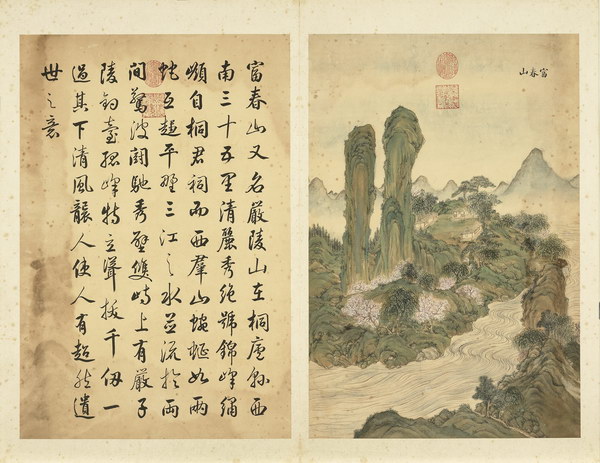 富春山
富春山又名嚴陵山在桐廬縣西
南三十五里清麗秀絕號錦峰繡
嶺自桐君祠而西羣山蜿蜒如兩
蛇互趨平野三江之水並流於兩
間驚波闘馳秀壁雙峙上有嚴子
陵釣臺孤峰特立聳拔千仞一
過其下清風襲人使人有超然遺
世之意